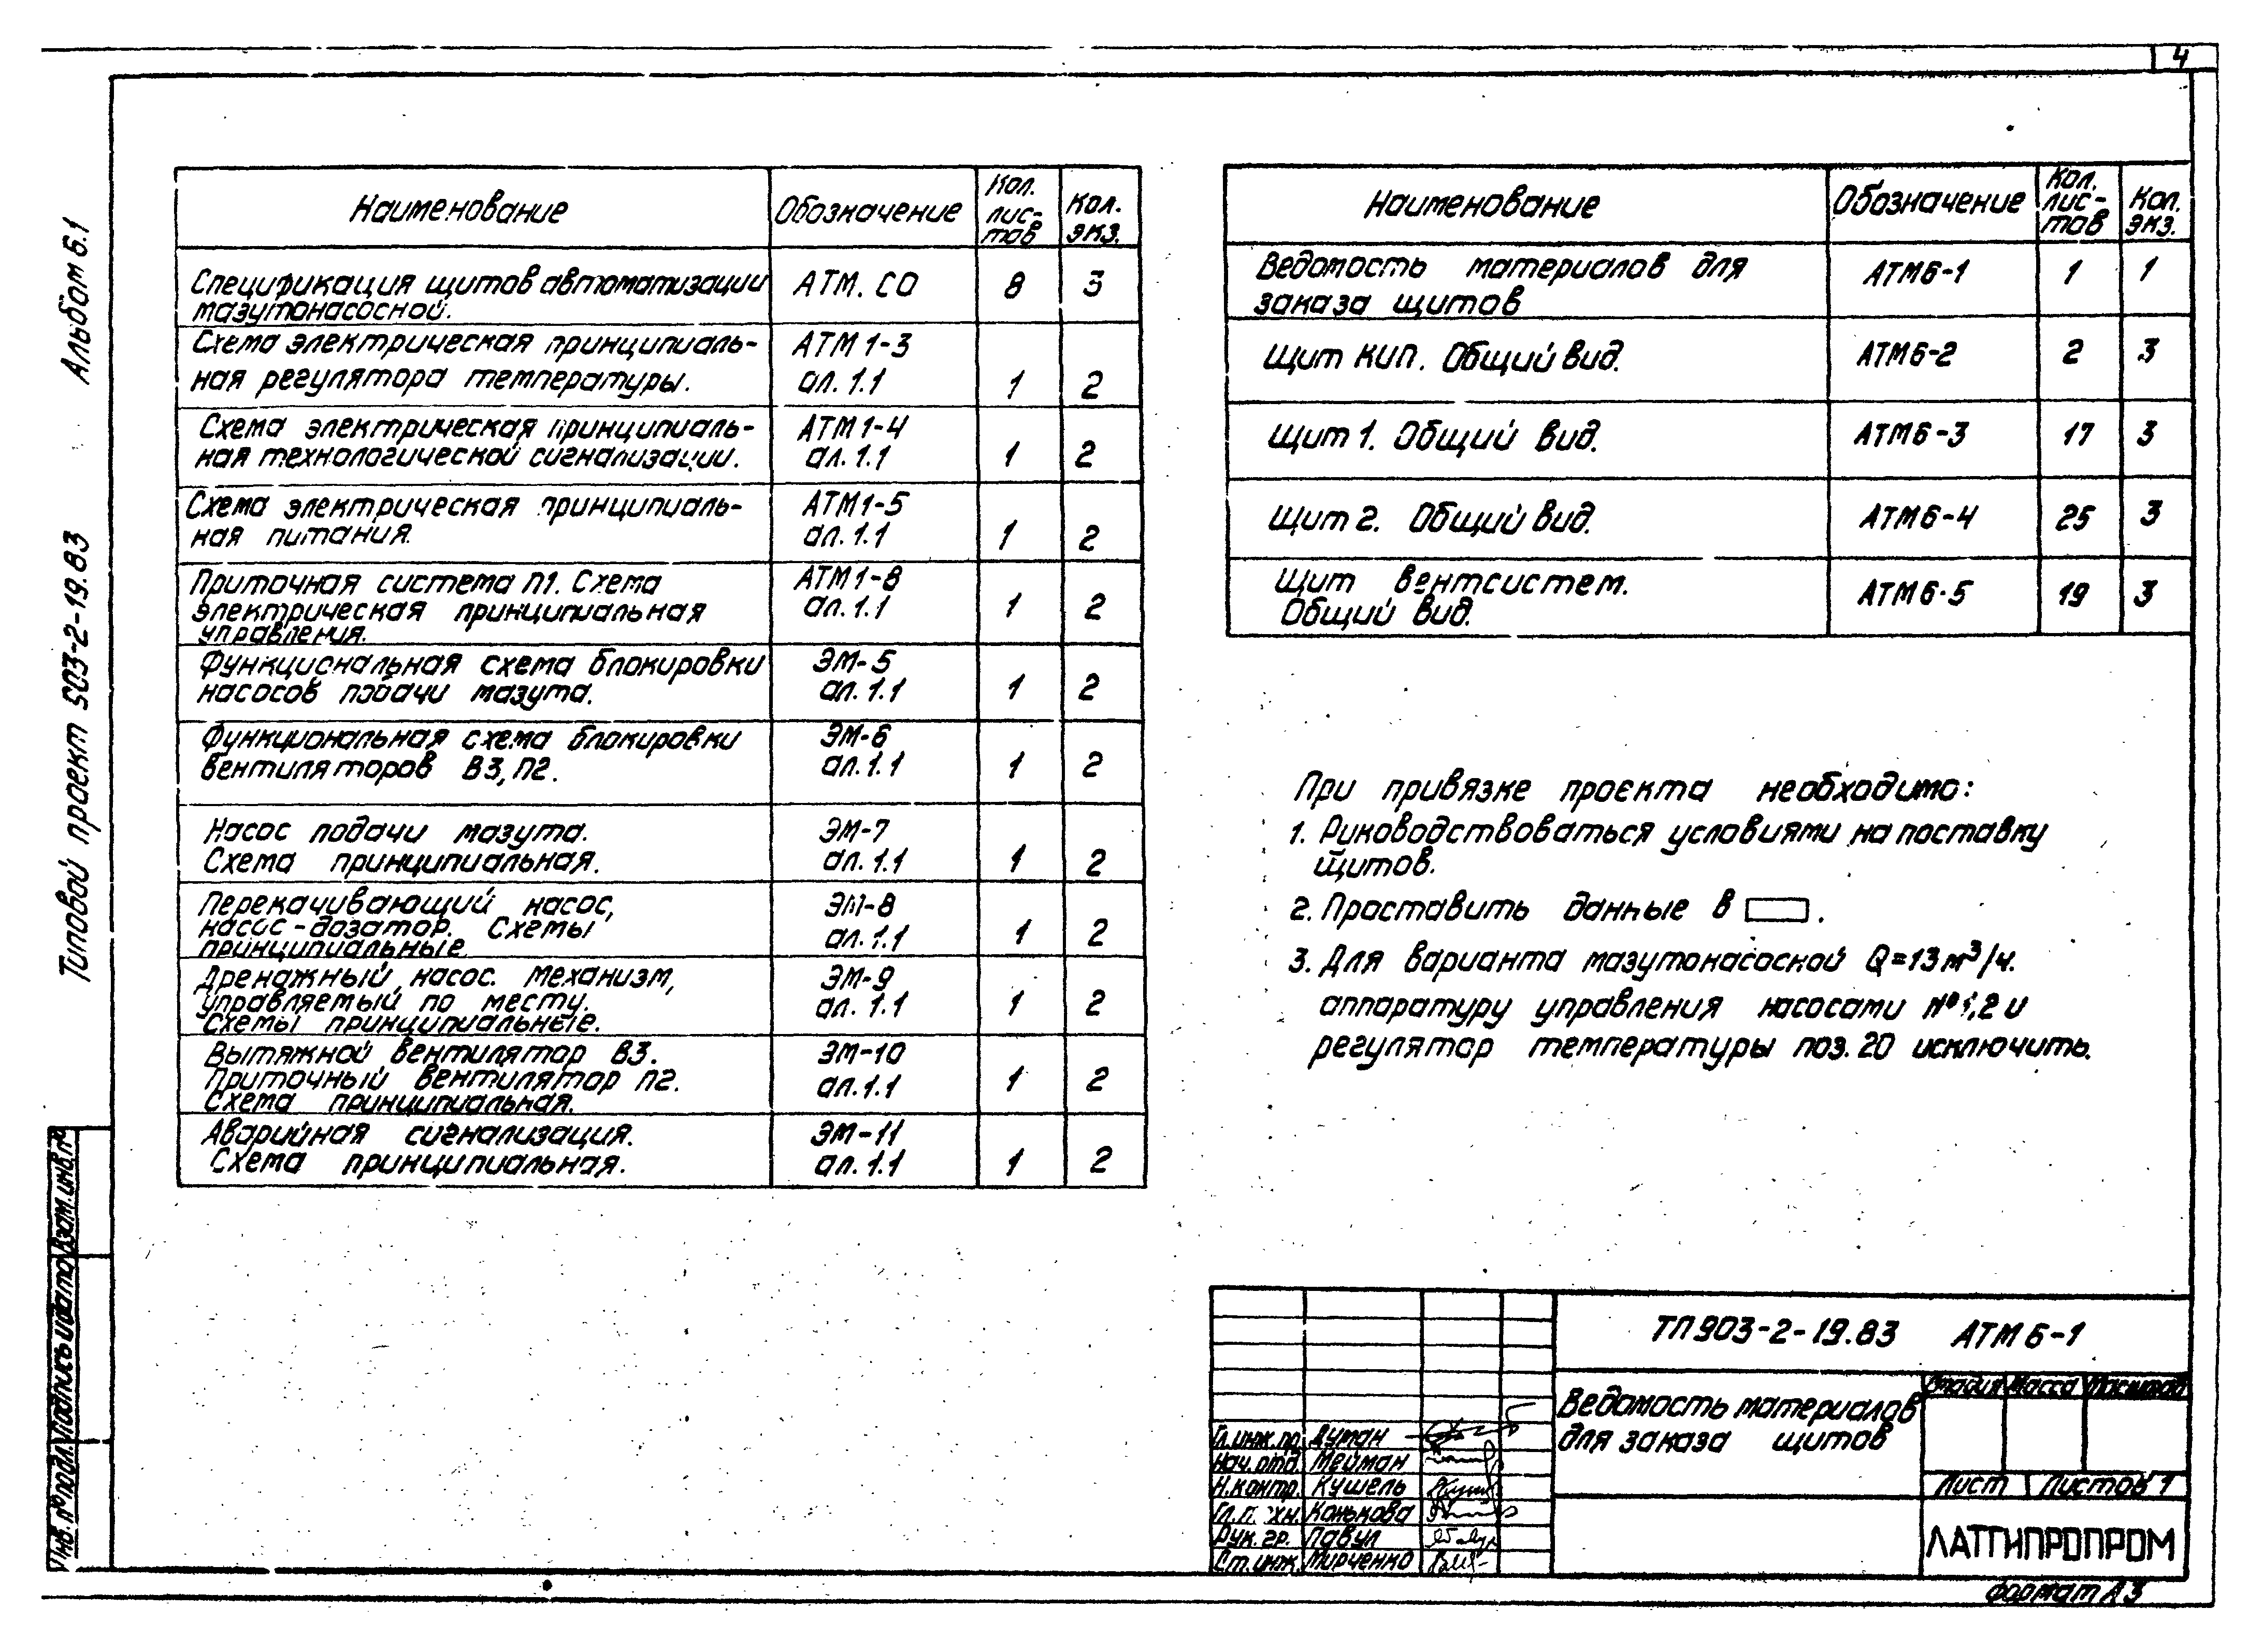 4
Альбом 6.1
Типовой проект 903-2-19.83
Наименование
Обозначение
Кол. лис-
тов
Кол.
экз.
Спецификация щитов автоматизации
мазутонасосной.
АТМ. СО
8
3
Схема электрическая принципиаль-
ная регулятора температуры.
АТМ 1-3
ал. 1.1
1
2
Схема электрическая принципиаль-
ная технологической сигнализации.
АТМ 1-4
ал. 1.1
1
2
Схема электрическая принципиаль-
ная питания.
АТМ1-5
ал. 1.1
1
2
Приточная система П1. Схема
электрическая принципиальная
управления.
АТМ 1-8
ал. 1.1
1
2
Функциональная схема блокировки
насосов подачи мазута.
ЭМ-5
ал. 1.1
1
2
Функциональная схема блокировки
вентиляторов В3, П2.
ЭМ-6
ал. 1.1
1
2
Насос подачи мазута.
Схема принципиальная.
ЭМ-7
ал. 1.1
1
2
Перекачивающий насос,
насос-дозатор. Схемы
принципиальные
ЭМ-8
ал. 1.1
1
2
Дренажный насос. Механизм,
управляемый по месту.
Схемы принципиальные.
ЭМ-9
ал. 1.1
1
2
Вытяжной вентилятор В3.
Приточный вентилятор П2.
Схема принципиальная.
ЭМ-10
ал. 1.1
1
2
Аварийная сигнализация.
Схема принципиальная.
ЭМ-11
ал. 1.1
1
2
Наименование
Обозначение
Кол.
лис-
тов
Кол.
экз.
Ведомость материалов для
заказа щитов
АТМ6-1
1
1
Щит КИП. Общий вид.
АТМ6-2
2
3
Щит 1. Общий вид.
АТМ6-3
17
3
Щит 2. Общий вид.
АТМ6-4
25
3
Щит вентсистем.
Общий вид.
АТМ6-5
19
3
При привязке проекта необходимо:
1. Руководствоваться условиями на поставку
щитов.
2. Проставить данные в .
3. Для варианта мазутонасосной Q=13м³/ч.
аппаратуру управления насосами №1,2 и
регулятор температуры поз. 20 исключить.
Инв.№подл. Подпись и дата Взам.инв.№
ТП 903-2-19.83 АТМ 6-1
Ведомость материалов
для заказа щитов
Стадия Масса Масштаб
Лист Листов 1
ЛАТГИПРОПРОМ
Гл.инж.пр. Думан
Нач.отд. Мейман
Н.контр. Кушель
Конькова
Рук. гр. Павул
Ст.инж. Мирченко
Формат А3